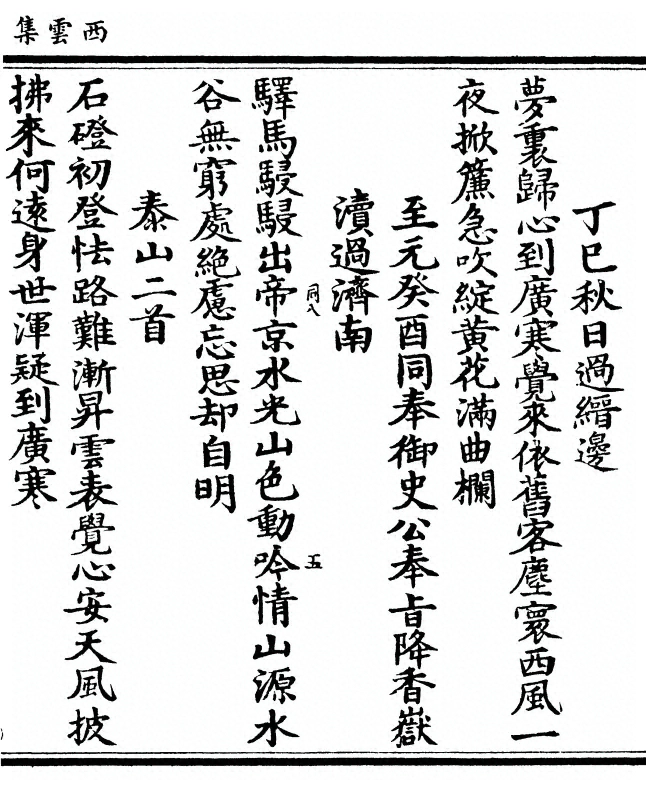 西雲集
丁巳秋日過縉邊
夢裏歸心到廣寒覺來依舊客塵寰西風一
夜掀簾急吹綻黃花滿曲欄
至元癸酉同奉御史公奉旨降香嶽
瀆過濟南
驛馬駸駸出帝京水光山色動吟情山源水
谷無窮處絶慮忘思却自明
同八
五
泰山二首
石磴初登怯路難漸昇雲表覺心安天風披
拂來何遠身世渾疑到廣寒